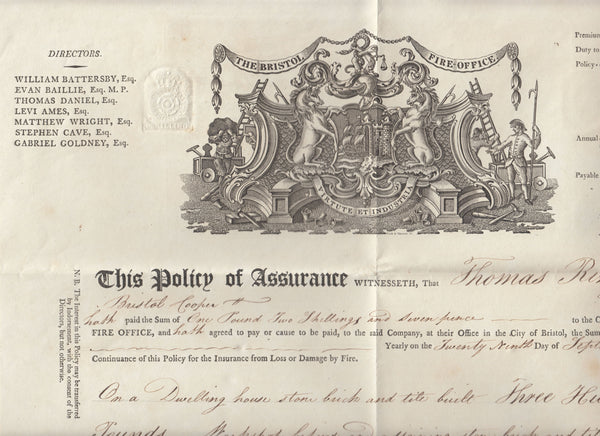 DIRECTORS.
WILLIAM BATTERSBY, Esq.
EVAN BAILLIE, Esq. M. P.
THOMAS DANIEL, Esq.
LEVI AMES, Esq.
MATTHEW WRIGHT, Esq.
STEPHEN CAVE, Esq.
GABRIEL GOLDNEY, Esq.
THE BRISTOL FIRE OFFICE
VIRTUTE ET INDUSTRIA
Premium
Duty to
Policy -
Annual
Payable
This Policy of Assurance WITNESSETH, That Thomas
Bristol Cooper
hath paid the Sum of One Pound Two Shillings and seven pence to the C
FIRE OFFICE, and hath agreed to pay or cause to be paid, to the said Company, at their Office in the City of Bristol, the Sum
Yearly on the Twenty Ninth Day of Sept
Continuance of this Policy for the Insurance from Loss or Damage by Fire.
On a Dwelling house stone brick and tile built Three Hu
Pounds
N. B. The Interest in this Policy may be transferred
by Indorsement, with the consent of the
Directors, but not otherwise.